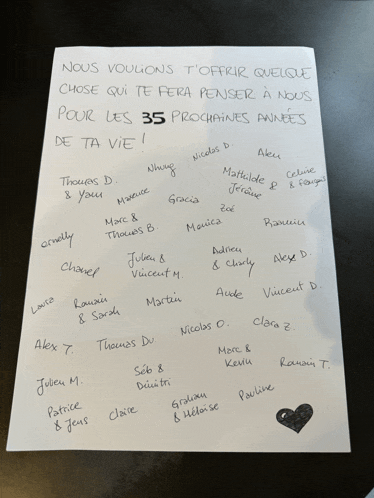 NOUS VOULIONS T'OFFRIR QUELQUE
CHOSE QUI TE FERA PENSER À NOUS
POUR LES 35 PROCHAINES ANNÉES
DE TA VIE !
Nhung Nicolas D. Alex
Thomas D. & Yann Maxence Gracia Mathilde & Jérôme Celine & François
Zoé
Marc & Thomas B. Monica
Chanel Julien & Vincent M. Adrien & Charly Alex D.
Laura Romain & Sarah Martin Aude Vincent D.
Alex T. Thomas Du. Nicolas O. Clara Z.
Julien M. Séb & Dimitri Marc & Kevin Romain T.
Patrice & Jens Claire Graham & Héloïse Pauline